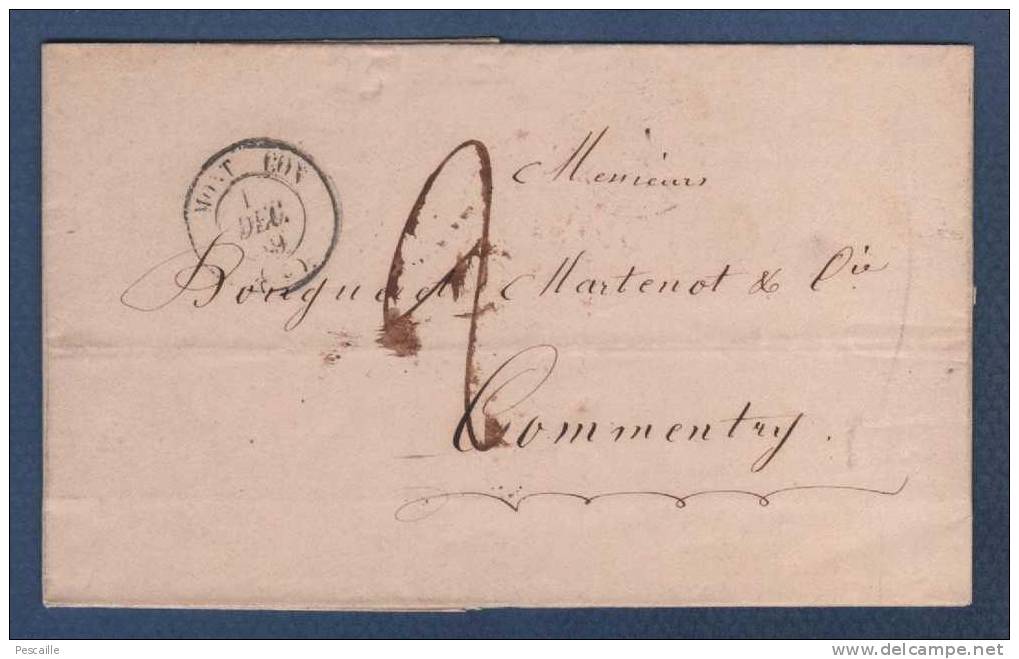 MONT ÇON
1
DEC.
Messieurs
Bougueret Martenot & Cie
Commentry.
Pescaille
www.delcampe.net